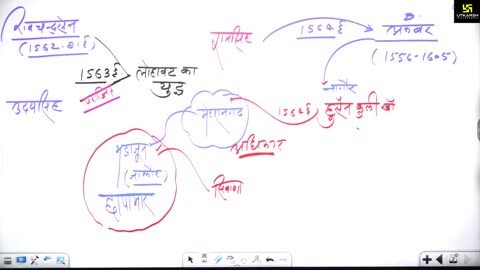 राव चन्द्रसेन
(1562-81ई)
1563ई
लोहावट का
युद्ध
उदयसिंह
रामसिंह
1564ई
अकबर
(1556-1605)
नागौर
1564ई
हुसैन कुली खाँ
मेहरानगढ़
अधिकार
भाद्राजून
(जालौर)
छापामार
सिवाणा
UTKARSH